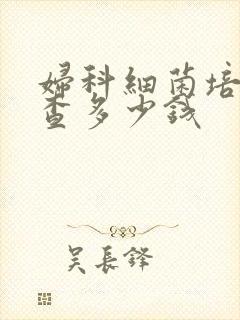 婦科細菌培
查多少錢
吴長鋒